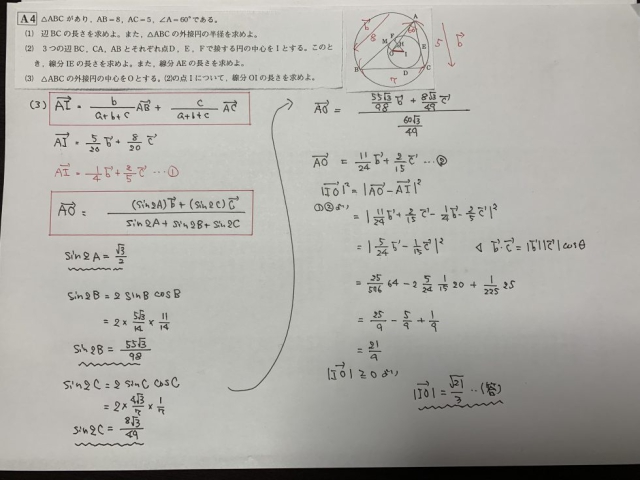 A4 △ABC があり、AB=8、AC=5、∠A=60°である。
(1) 辺BCの長さを求めよ。また、△ABCの外接円の半径を求めよ。
(2) 3つの辺BC、CA、ABとそれぞれ点D、E、Fで接する円の中心をIとする。このとき、線分IEの長さを求めよ。また、線分AEの長さを求めよ。
(3) △ABCの外接円の中心をOとする。(2)の点Iについて、線分OIの長さを求めよ。
A
60
b
8
F
M
H
O
I
E
5
b
B
D
C
7
(3) AI = b/(a+b+c) AB + c/(a+b+c) AC
AI = 5/20 b + 8/20 c
AI = 1/4 b + 2/5 c …①
AO = ((sin2B) b + (sin2C) c)/(sin2A + sin2B + sin2C)
sin2A = √3/2
sin2B = 2 sinB cosB
= 2 × 5√3/14 × 11/14
sin2B = 55√3/98
sin2C = 2 sinC cosC
= 2 × 4√3/7 × 1/7
sin2C = 8√3/49
AO = (55√3/98 b + 8√3/49 c)/(60√3/49)
AO = 11/24 b + 2/15 c …②
|IO|² = |AO − AI|²
①②より = |11/24 b + 2/15 c − 1/4 b − 2/5 c|²
= |5/24 b − 4/15 c|² ◁ b・c = |b||c| cosθ
= 25/576 64 − 2 5/24 4/15 20 + 16/225 25
= 25/9 − 5/9 + 1/9
= 21/9
|IO| ≧ 0 より
|IO| = √21/3 …(答)